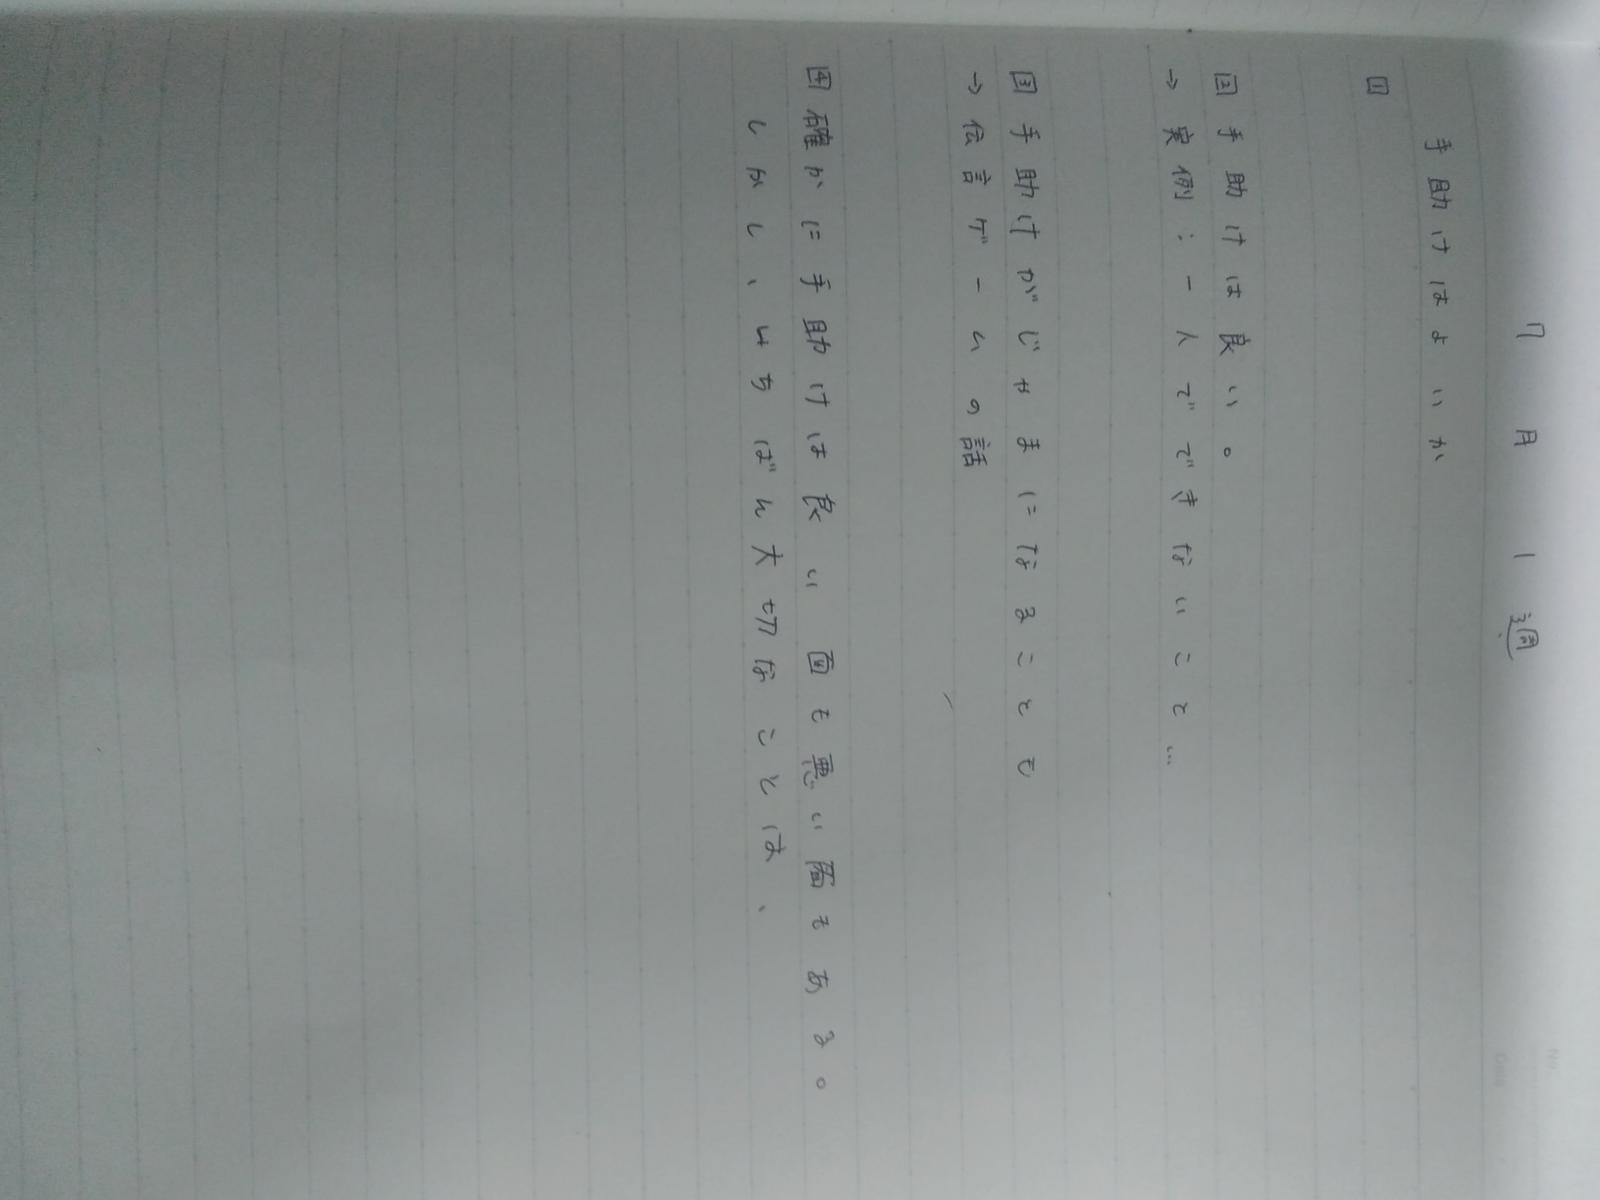 7月 1週
手助けはよいか
1
2 手助けは良い。
→ 実例:一人でできないこと…
3 手助けがじゃまになることも
→ 伝言ゲームの話
4 確かに手助けは良い 面も悪い面もある。
しかし、いちばん大切なことは、